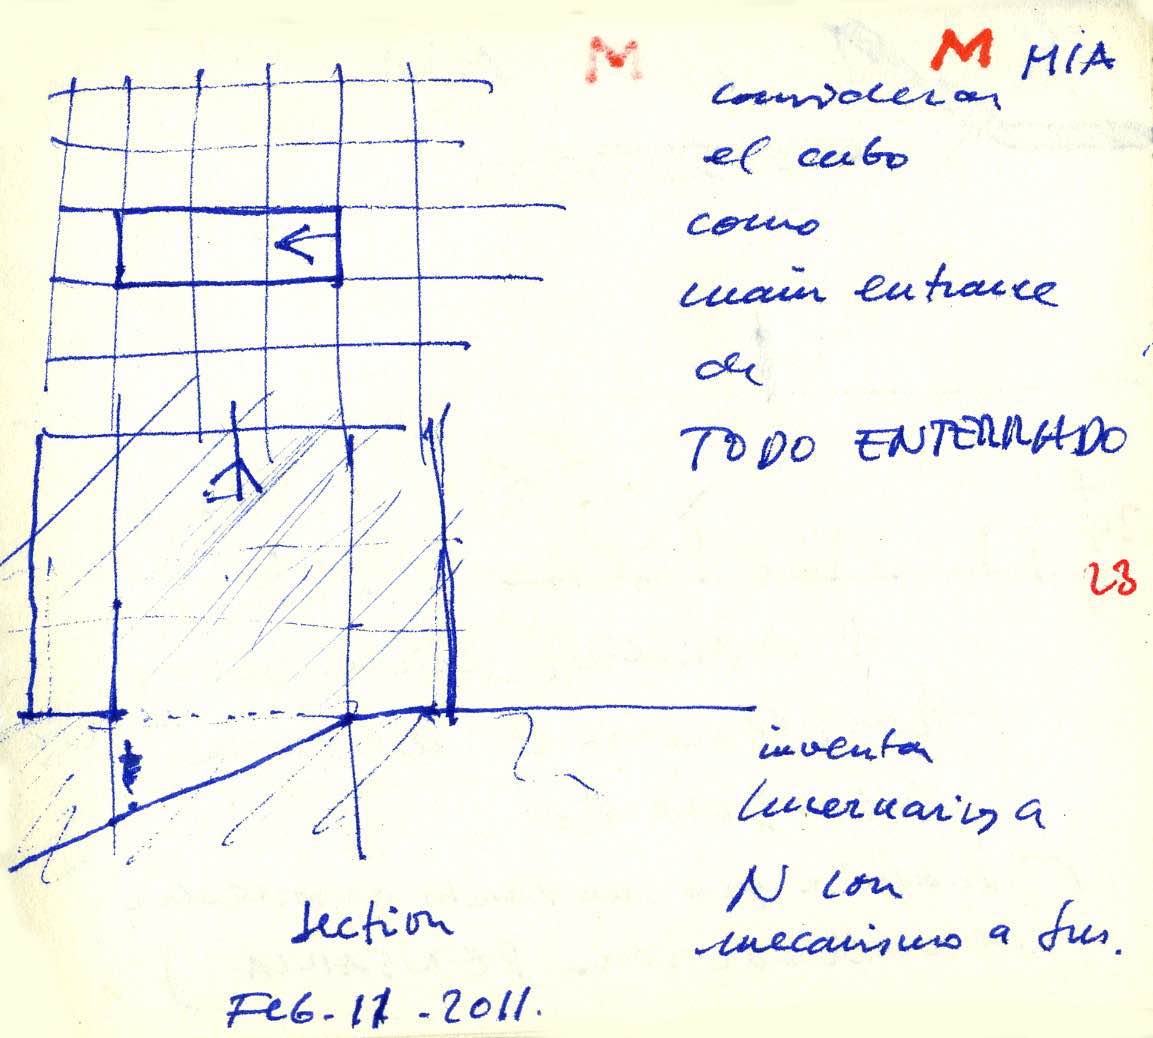 M
M MIA
considerar
el cubo
como
main entrance
de
TODO ENTERRADO
23
inventar
lucernarios a
N con
mecanismo a
section
FEB-11-2011.